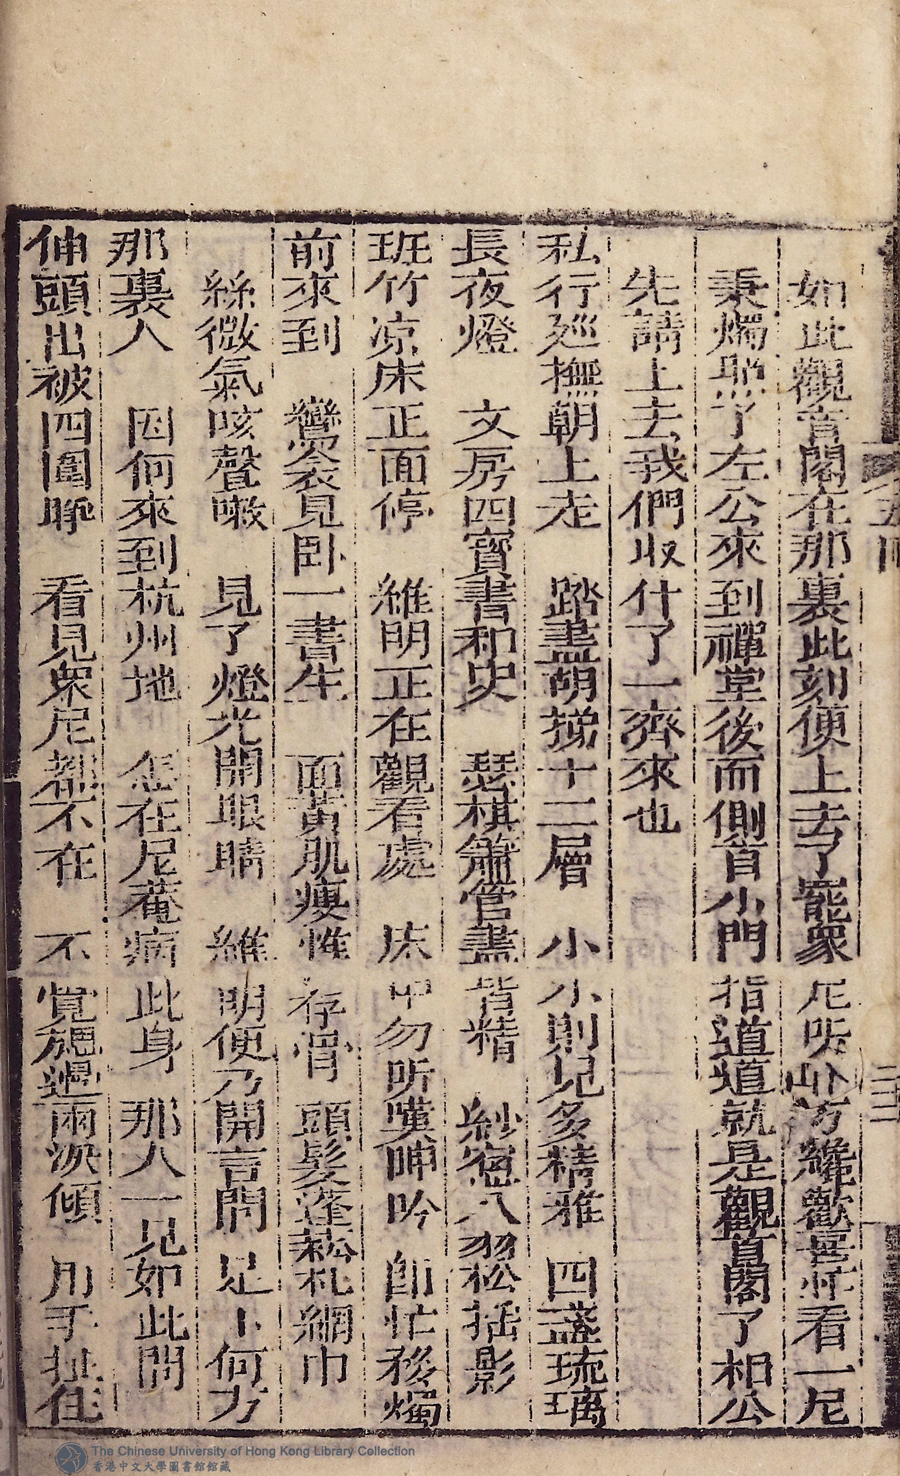 如此觀音閣在那裏此刻便上去了罷衆尼听分付纔歡喜忙看一尼
秉燭照了左公來到禪堂後而側首小門指道這就是觀音閣了相公
先請上去我們收什了一齊來也
私行廵撫朝上走 踏盡胡梯十二層 小小則見多精雅 四盞琉璃
長夜燈 文房四寳書和史 瑟棋簫管盡皆精 紗窓八羽松括影
班竹凉床正面停 維明正在觀看處 床中勿听嘆呻吟 即忙移燭
前來到 鸞衾見卧一書生 面黃肌瘦惟存骨 頭髮蓬菘札網巾
絲微氣咳聲嗽 見了燈光開眼睛 維明便乃開言問 足下何方
那裏人 因何來到杭州地 怎在尼菴病此身 那人一見如此問
伸頭出被四圍睁 看見衆尼都不在 不覚腮邊兩淚傾 用手扯住
The Chinese University of Hong Kong Library Collection
香港中文大學圖書館館藏